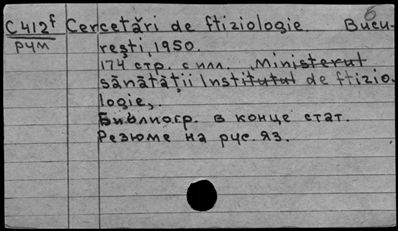 6
C 412f Cercetări de ftiziologie. Bucu-
рум rești, 1950.
174 стр. с илл. Ministerul
sănătății Institutul de ftizio-
logie,.
Библиогр. в конце стат.
Резюме на рус. яз.